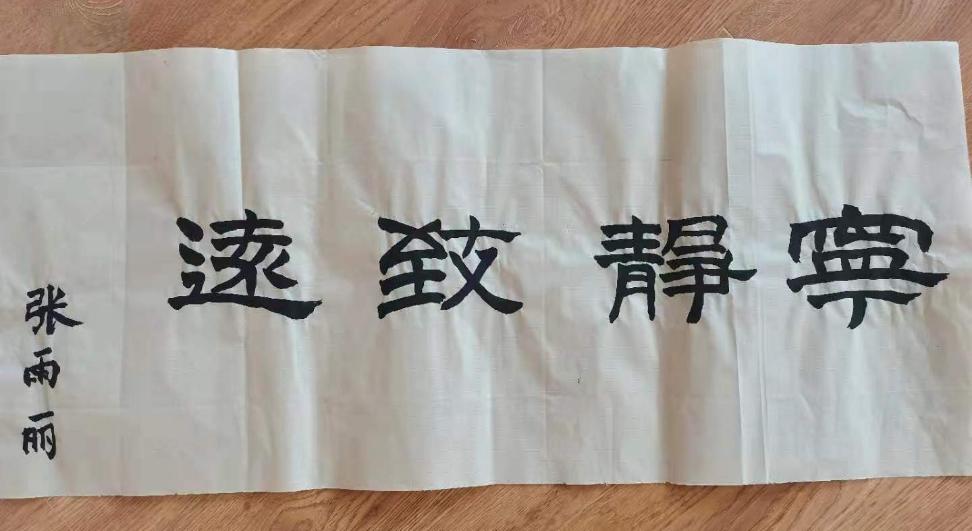 寧靜致遠
张雨丽